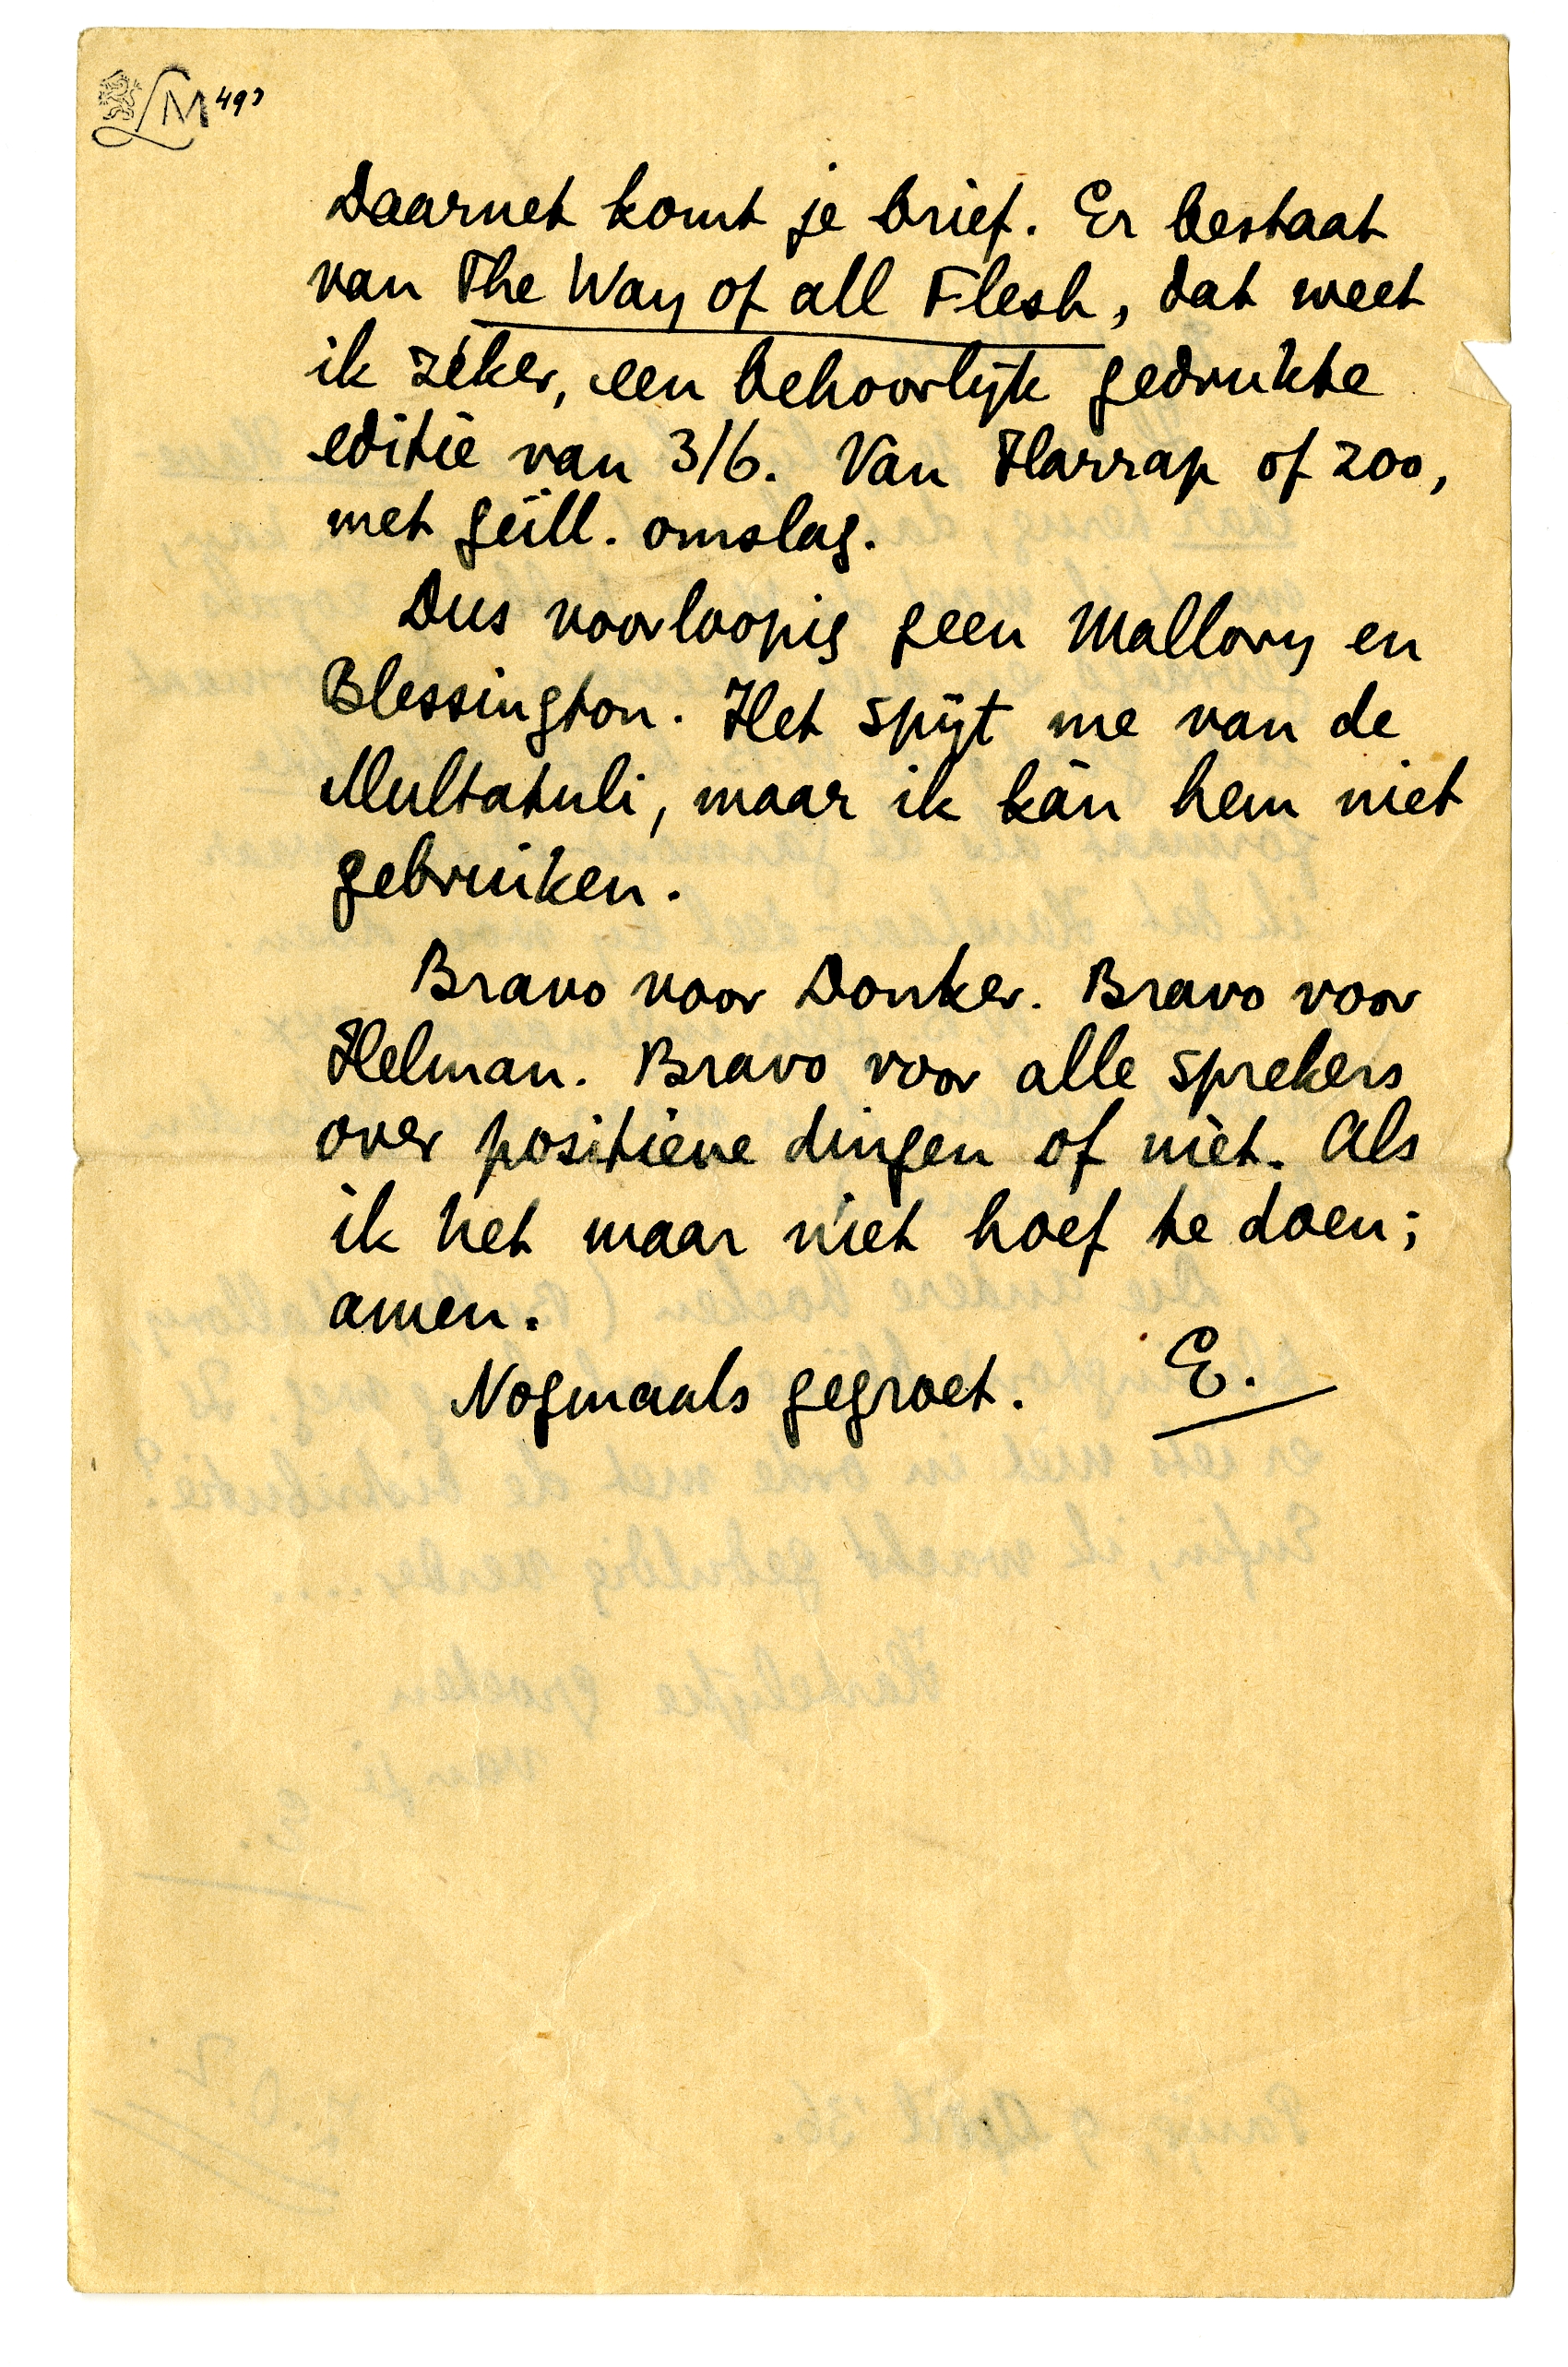 LM 493
Daarnet komt je brief. Er bestaat
van The Way of all Flesh, dat weet
ik zéker, een behoorlijk gedrukte
editie van 3/6. Van Harrap of zoo,
met geïll. omslag.
Dus voorloopig geen Mallory en
Blessington. Het spijt me van de
Multatuli, maar ik kàn hem niet
gebruiken.
Bravo voor Donker. Bravo voor
Helman. Bravo voor alle sprekers
over positieve dingen of niet. Als
ik het maar niet hoef te doen;
amen.
Nogmaals gegroet. E.